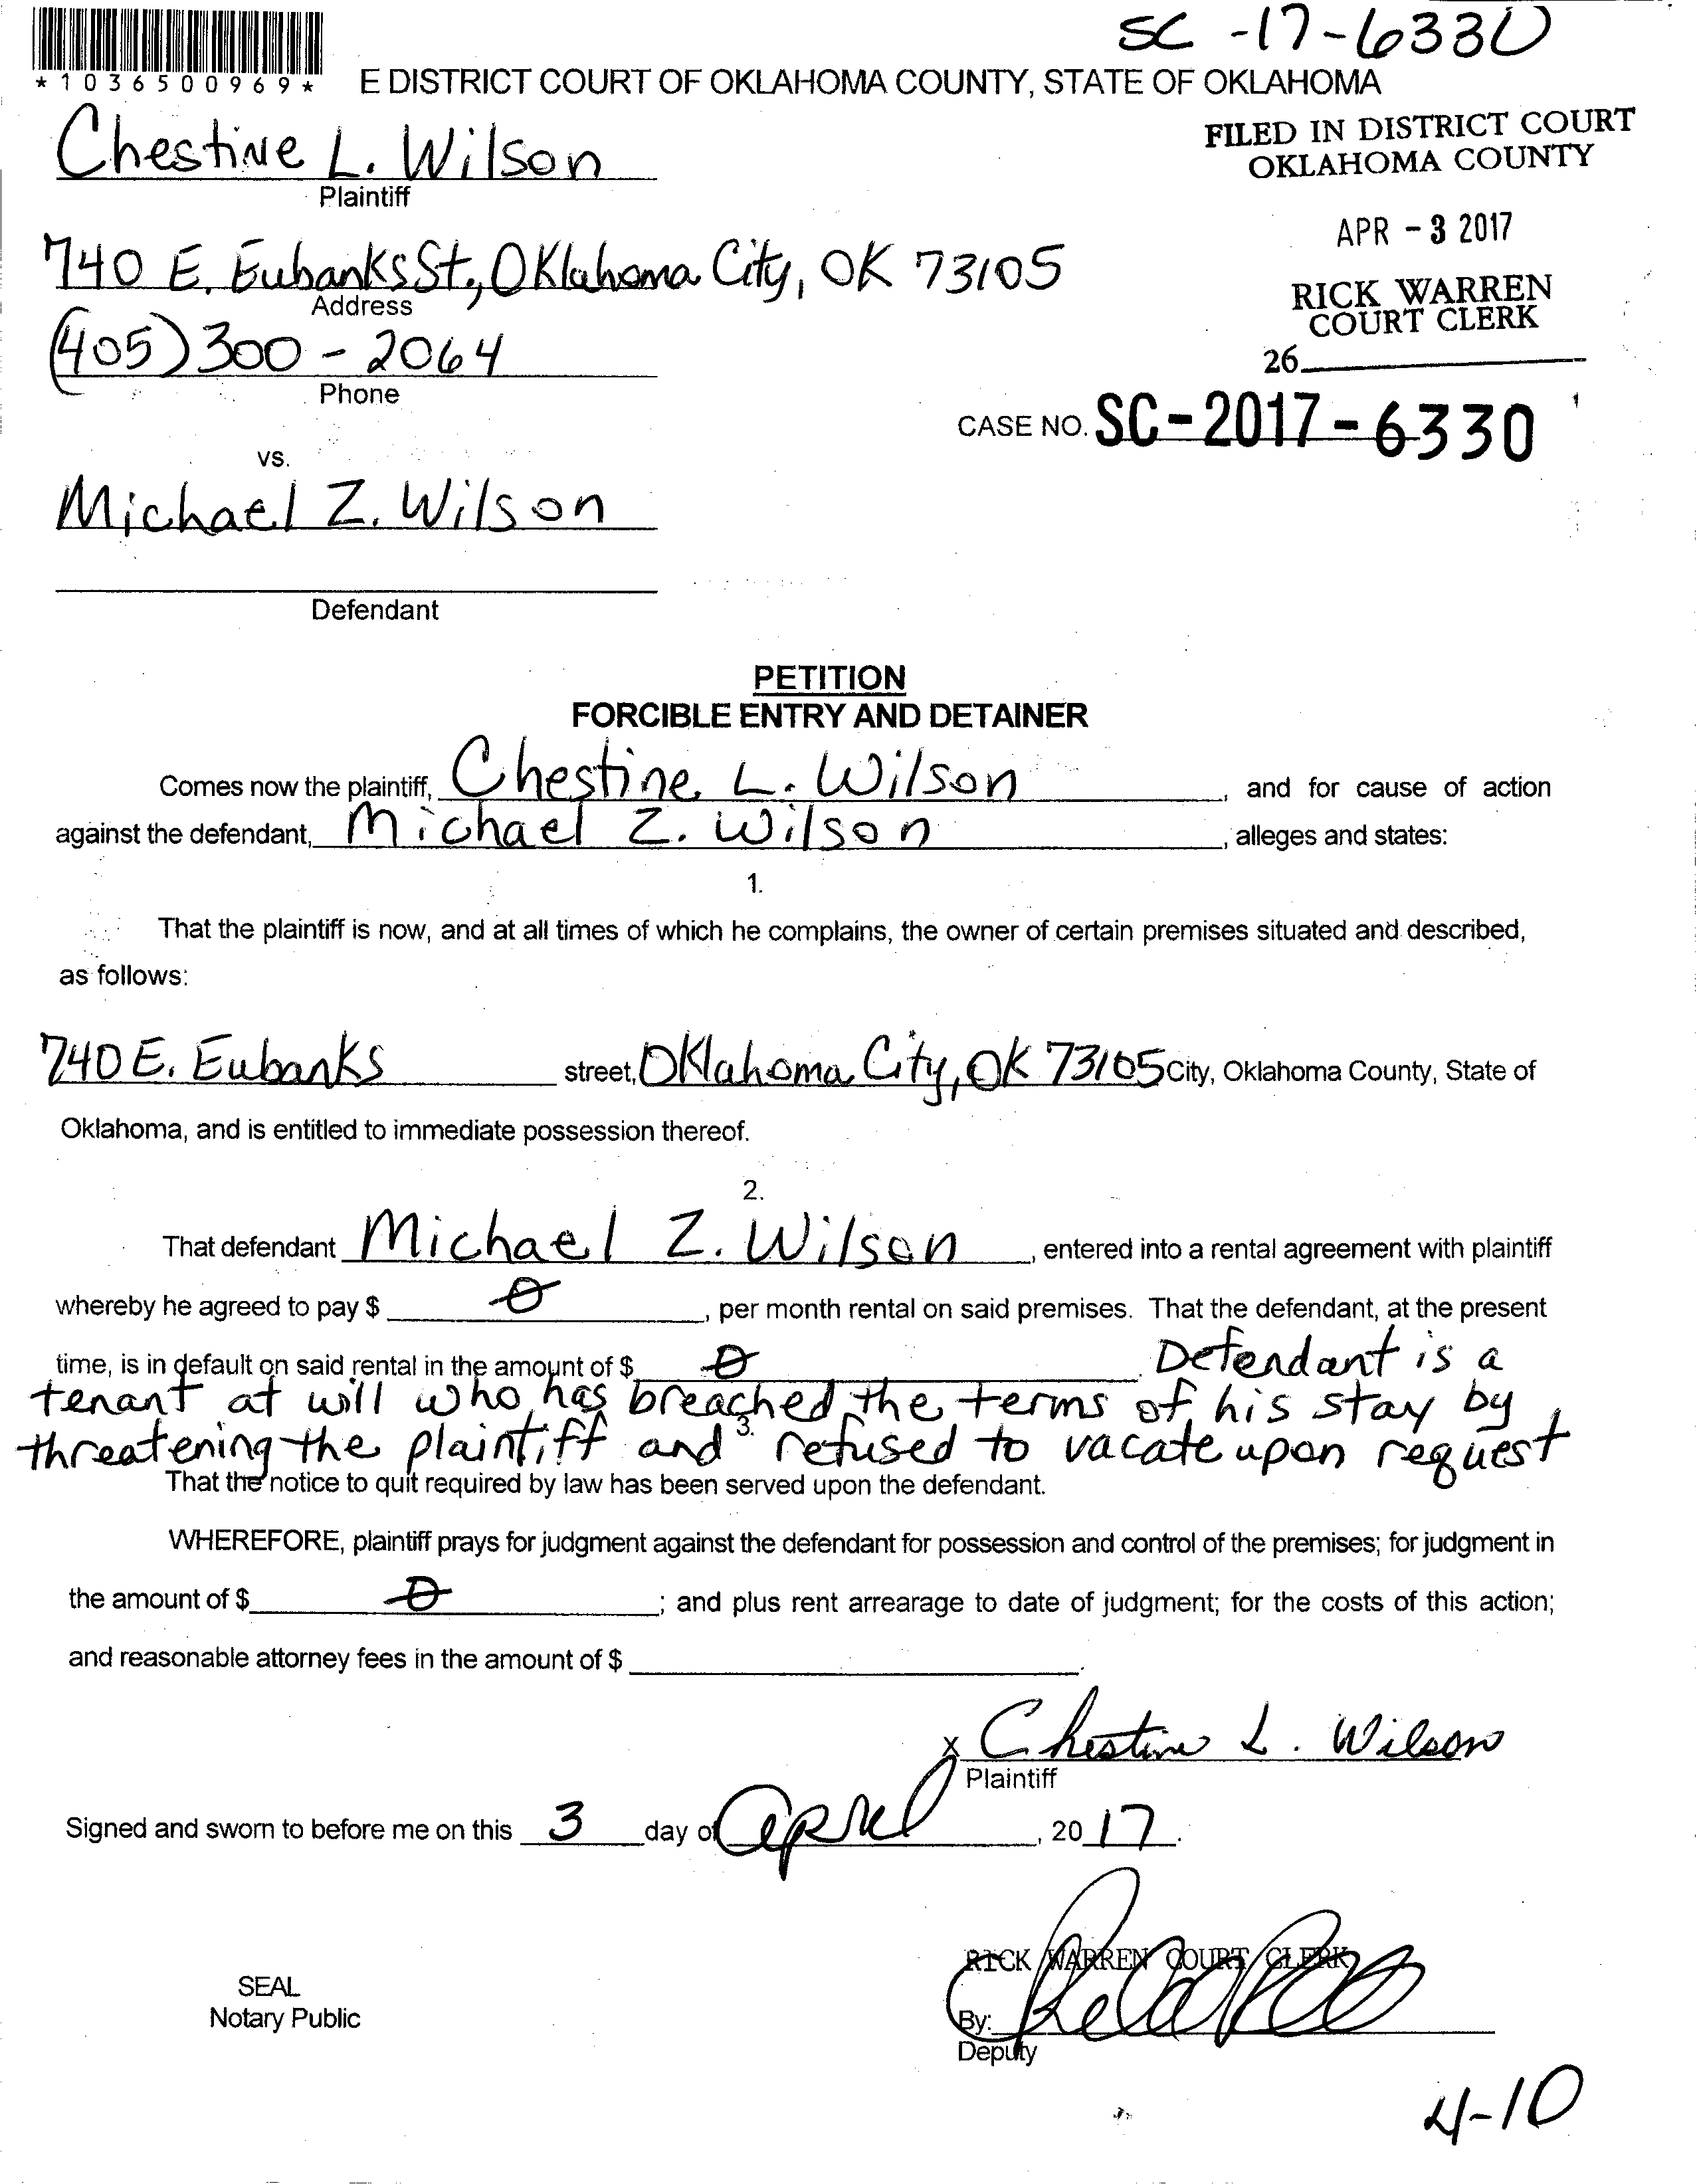 SC-17-6330
*1036500969*
E DISTRICT COURT OF OKLAHOMA COUNTY, STATE OF OKLAHOMA
FILED IN DISTRICT COURT
OKLAHOMA COUNTY
Chestine L. Wilson
Plaintiff
APR - 3 2017
740 E. Eubanks St., Oklahoma City, OK 73105
Address
RICK WARREN
COURT CLERK
(405) 300 - 2064
Phone
26
CASE NO. SC-2017-6330
vs.
Michael Z. Wilson
Defendant
PETITION
FORCIBLE ENTRY AND DETAINER
Comes now the plaintiff, Chestine L. Wilson, and for cause of action
against the defendant, Michael Z. Wilson, alleges and states:
1.
That the plaintiff is now, and at all times of which he complains, the owner of certain premises situated and described,
as follows:
740 E. Eubanks street, Oklahoma City, OK 73105 City, Oklahoma County, State of
Oklahoma, and is entitled to immediate possession thereof.
2.
That defendant Michael Z. Wilson, entered into a rental agreement with plaintiff
whereby he agreed to pay $ 0, per month rental on said premises. That the defendant, at the present
time, is in default on said rental in the amount of $ 0. Defendant is a
tenant at will who has breached the terms of his stay by
3.
threatening the plaintiff and refused to vacate upon request
That the notice to quit required by law has been served upon the defendant.
WHEREFORE, plaintiff prays for judgment against the defendant for possession and control of the premises; for judgment in
the amount of $ 0; and plus rent arrearage to date of judgment; for the costs of this action;
and reasonable attorney fees in the amount of $
x Chestine L. Wilson
Plaintiff
Signed and sworn to before me on this 3 day of April, 2017.
RICK WARREN COURT CLERK
SEAL
Notary Public
By:
Deputy
4-10